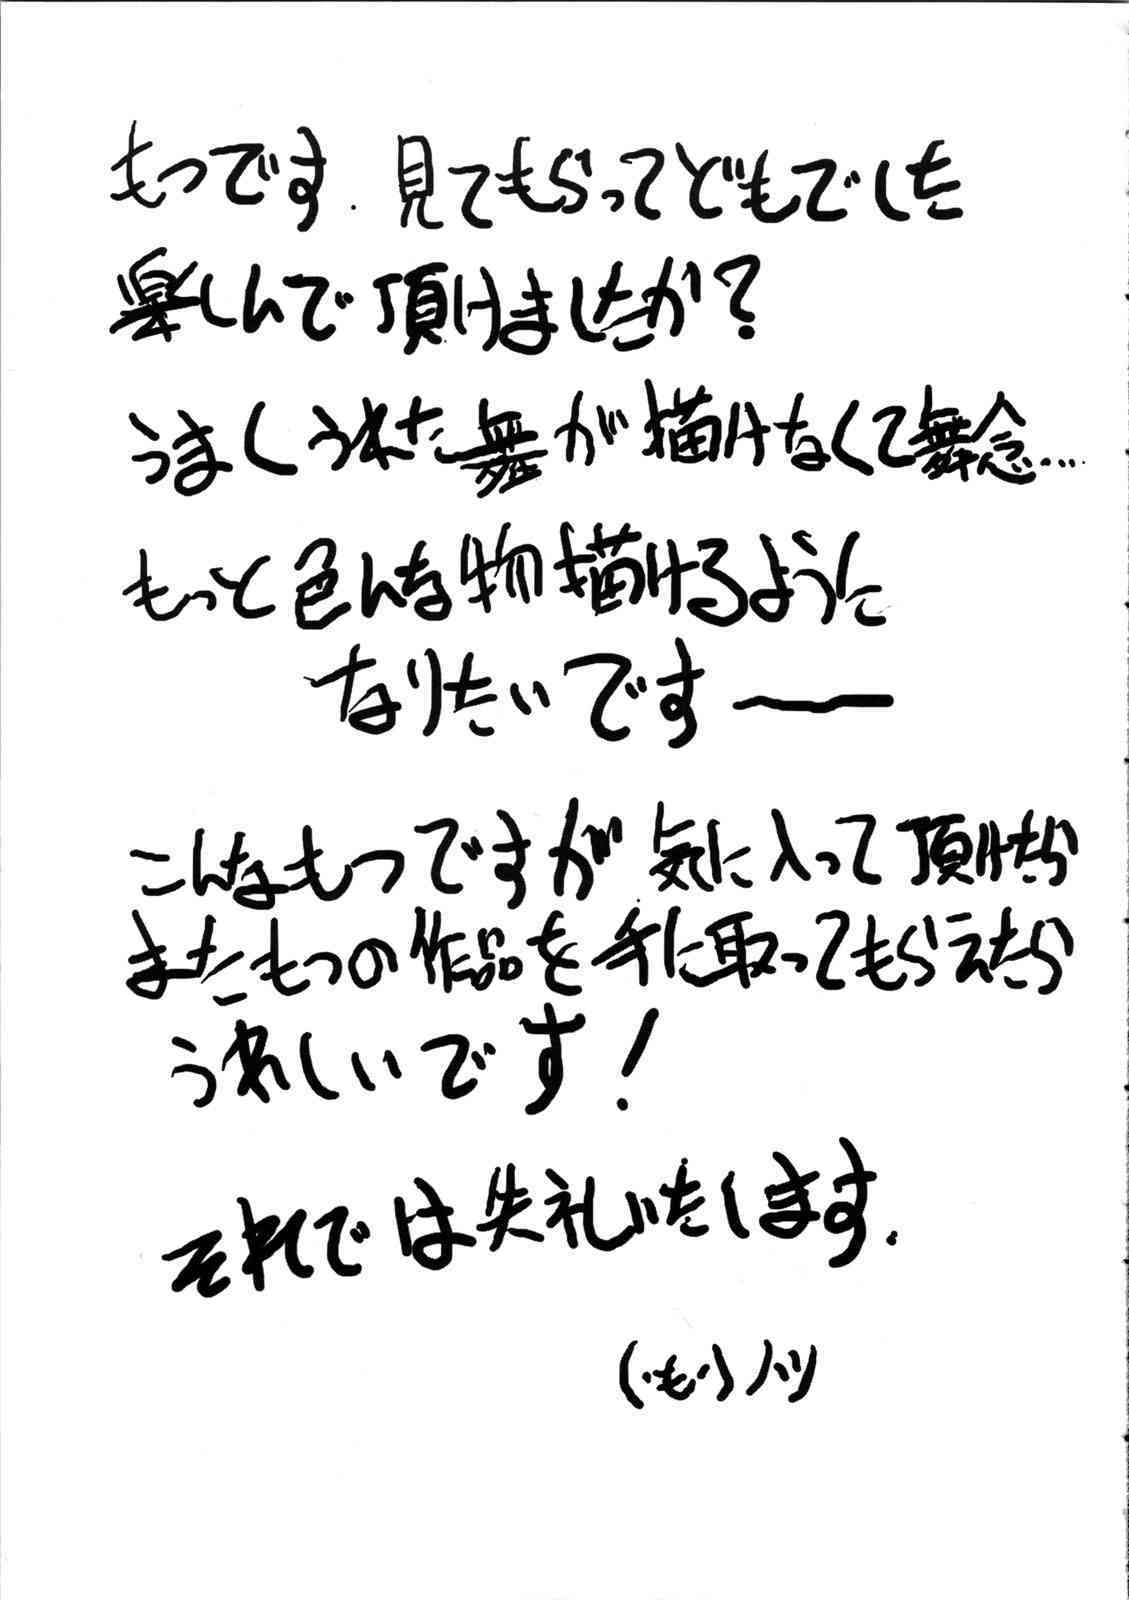 もつです.見てもらってどもでした
楽しんで頂けましたか?
うましうれた舞が描けなくて舞念…
もっと色んな物描けるように
なりたいです〜
こんなもつですが気に入って頂けたら
またもつの作品を手に取ってもらえたら
うれしいです!
それでは失礼いたします.
(・も・)ノシ